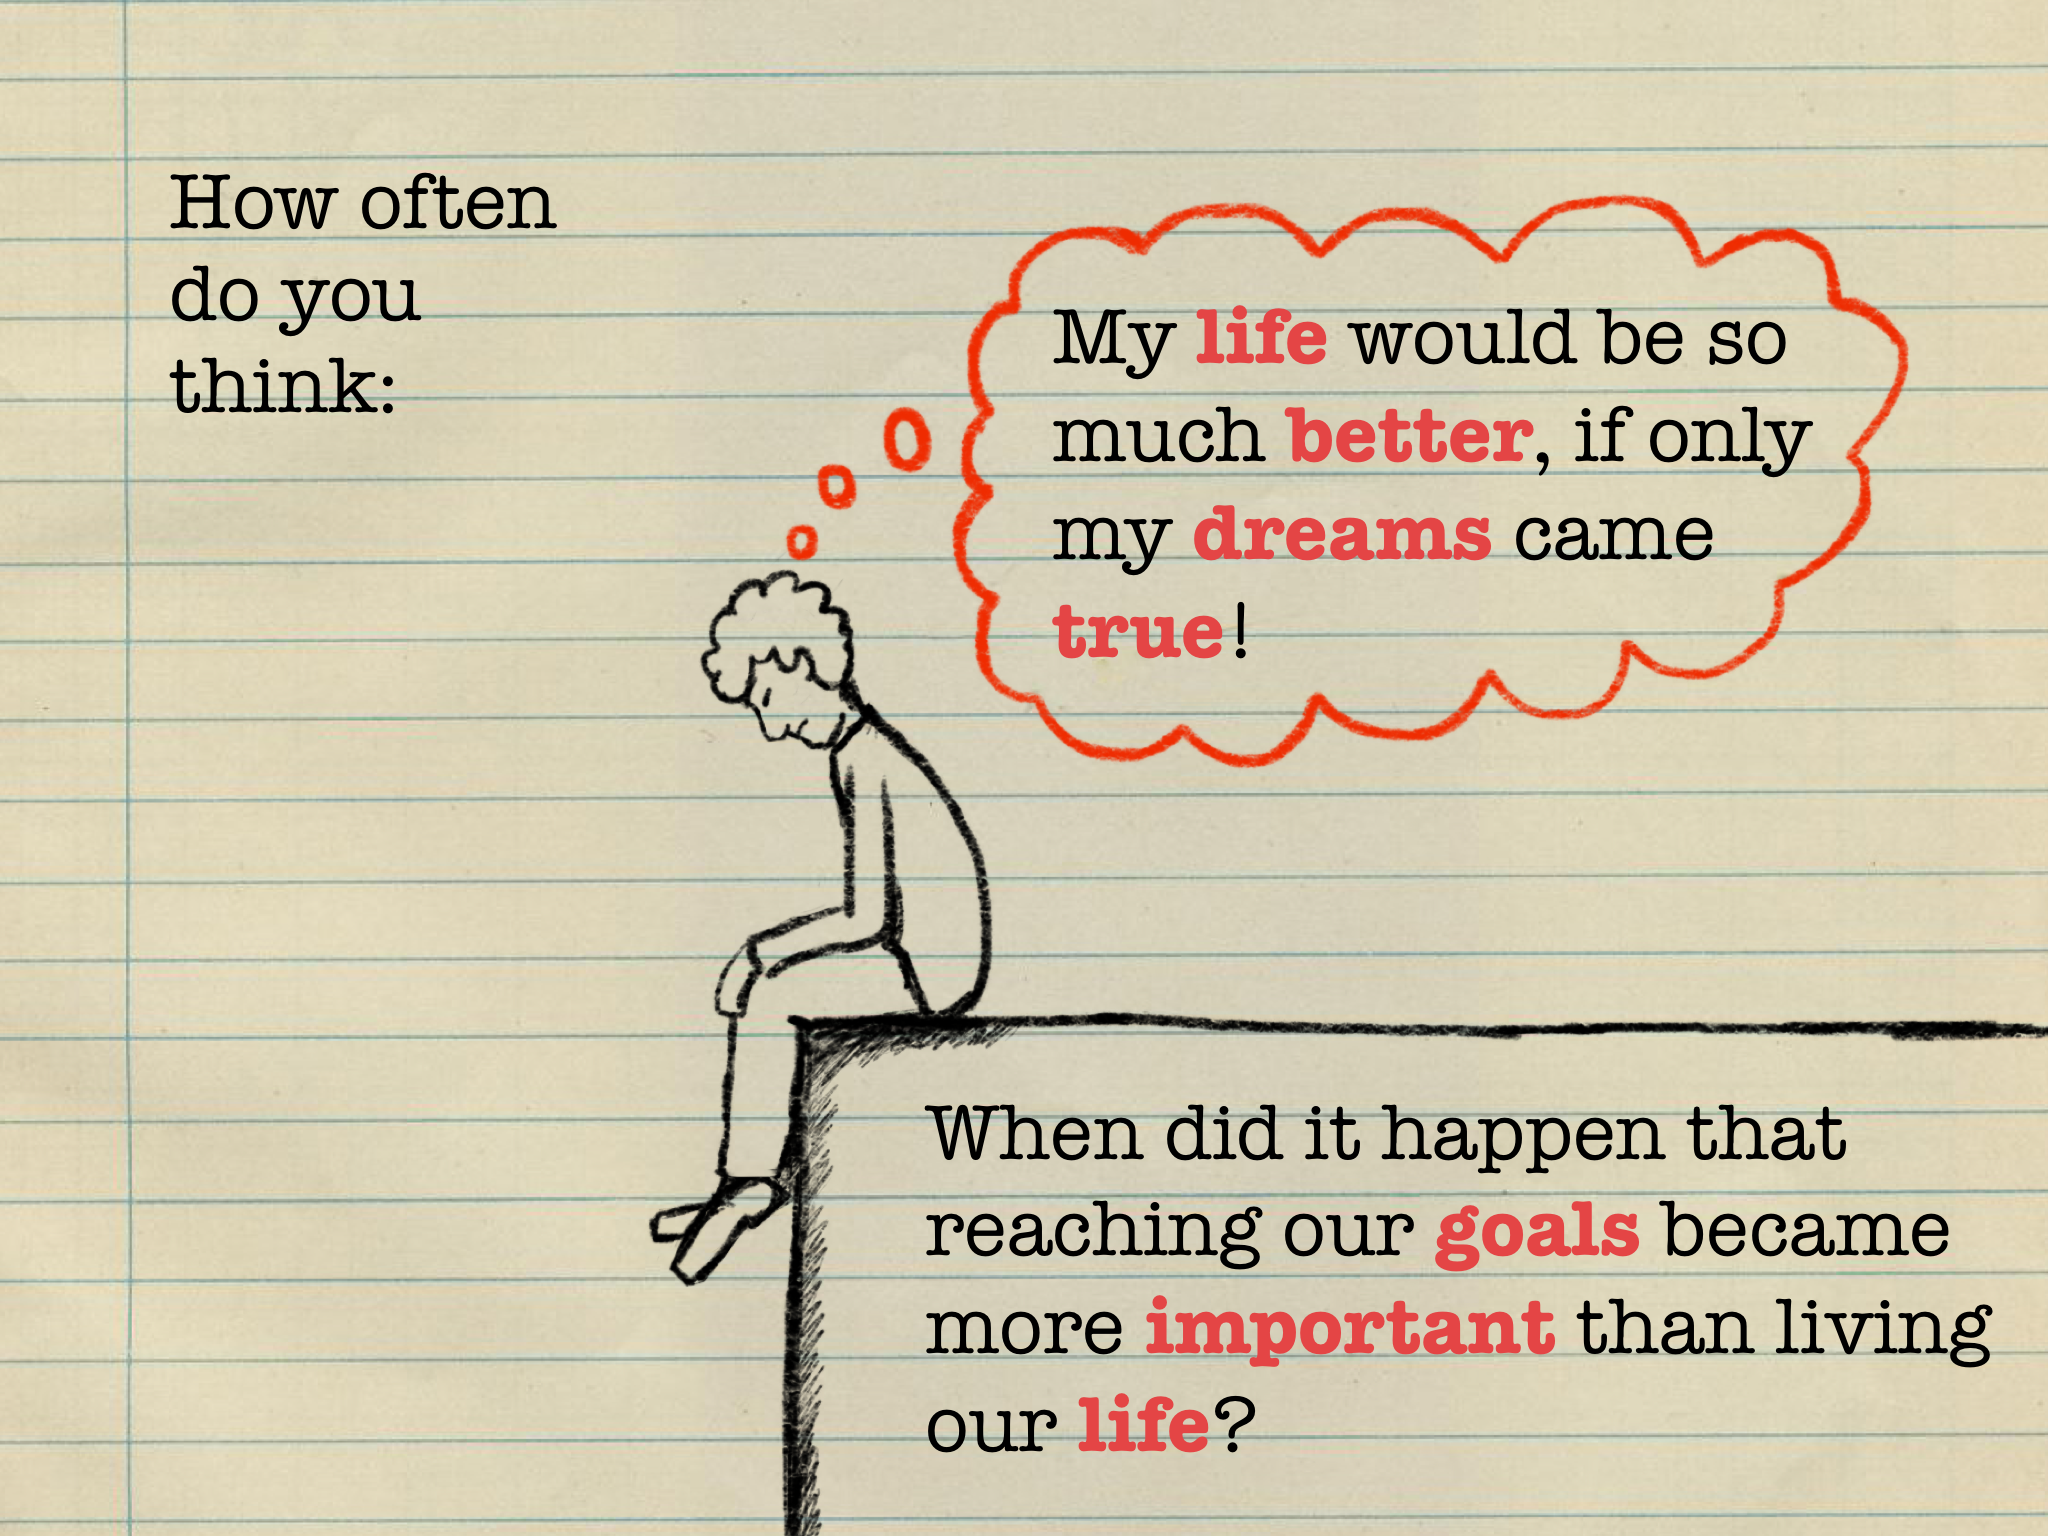 How often
do you
think:
My life would be so
much better, if only
my dreams came
true!
When did it happen that
reaching our goals became
more important than living
our life?